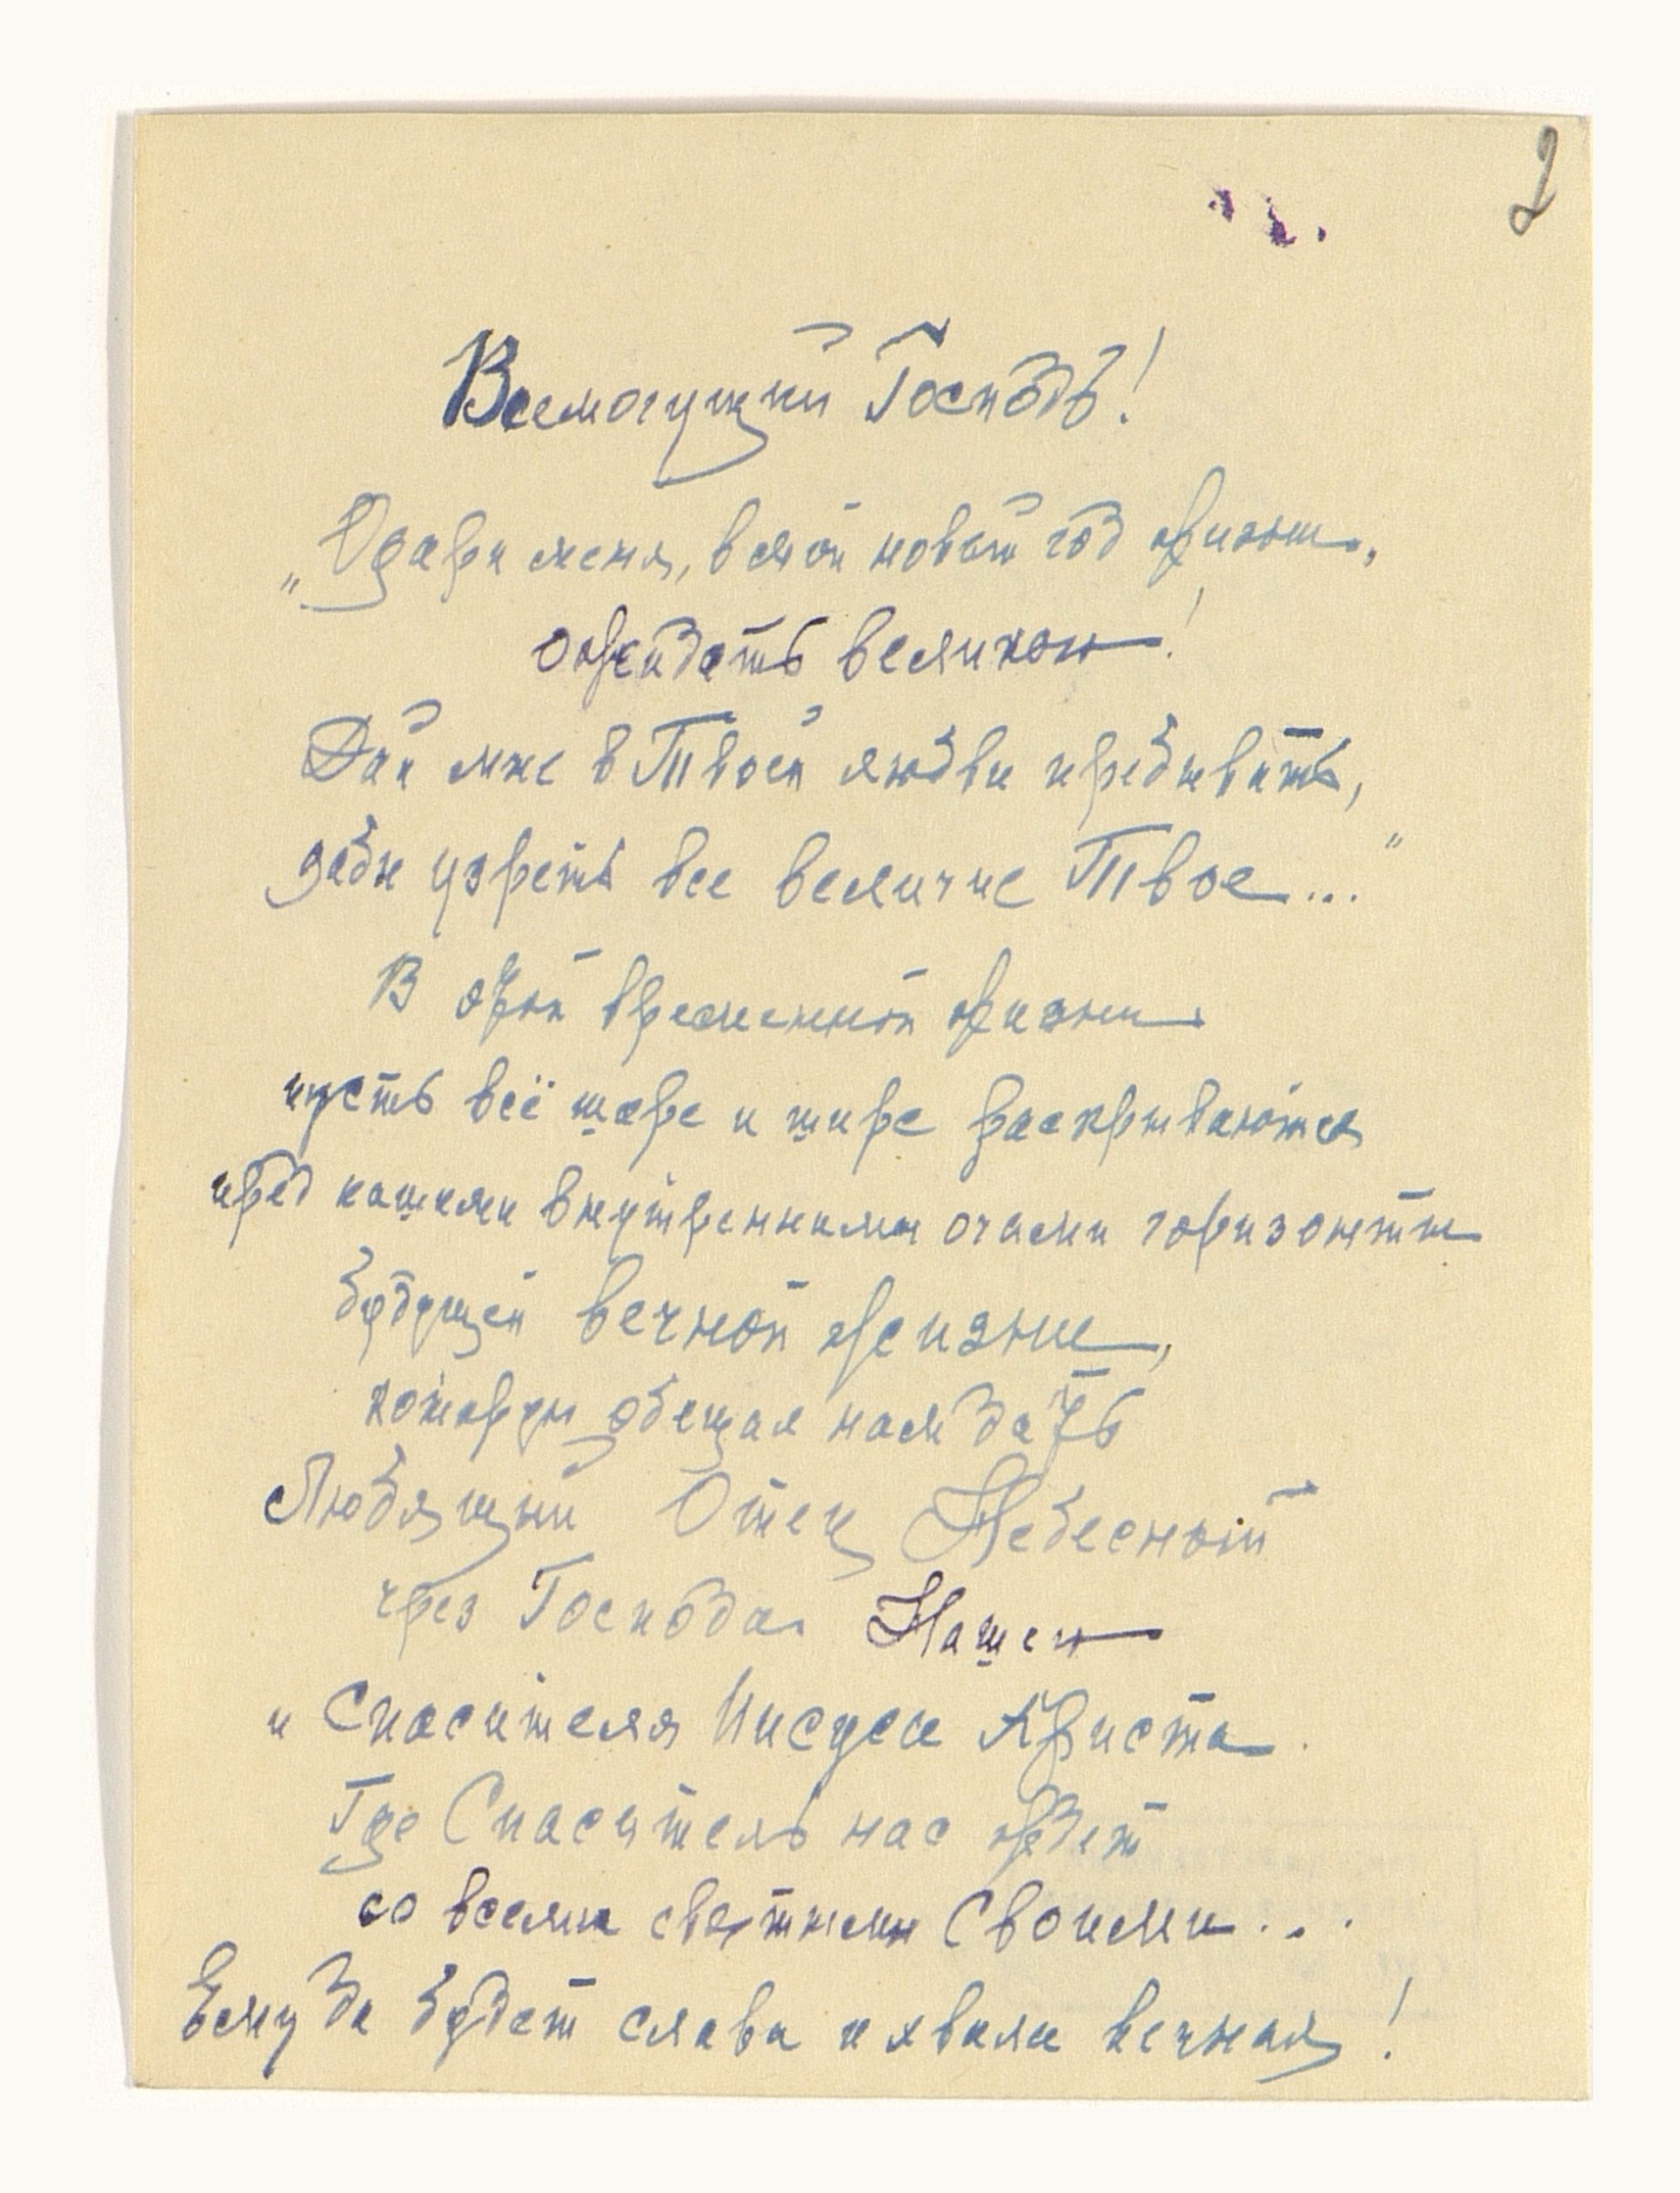 2
Всемогущий Господь!
„Одари меня, в мой новый год жизни,
ожидать великой!
Дай мне в Твоей любви пребывать,
дабы узреть все величие Твое..."
В этой временной жизни
пусть всё шире и шире раскрываются
пред нашими внутренними очами горизонты
будущей вечной жизни,
которую обещал нам дать
Любящий Отец Небесный
чрез Господа Нашего
и Спасителя Иисуса Христа.
Где Спаситель нас ждет
со всеми святыми Своими...
Ему да будет слава и хвала вечная!